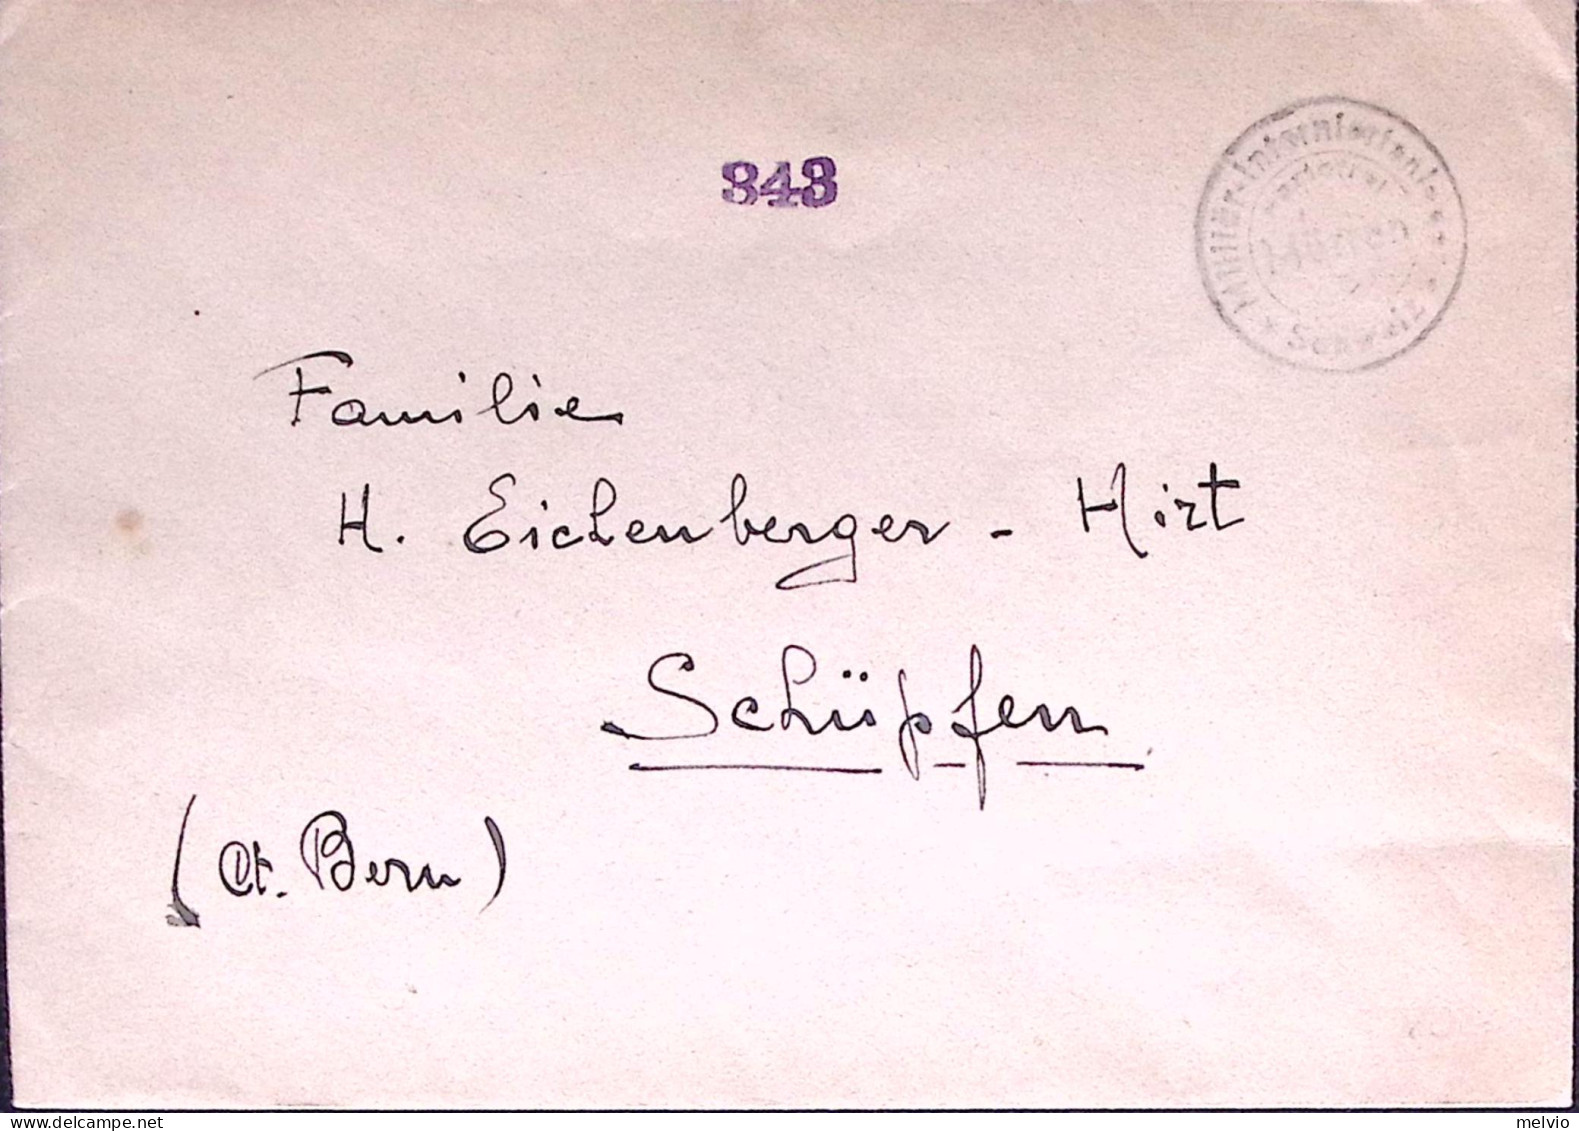 343
Militär-Interniertenlager
Murren
Schweiz
Familie
H. Eichenberger - Hirt
Schüpfen
(Ct. Bern)
melvio